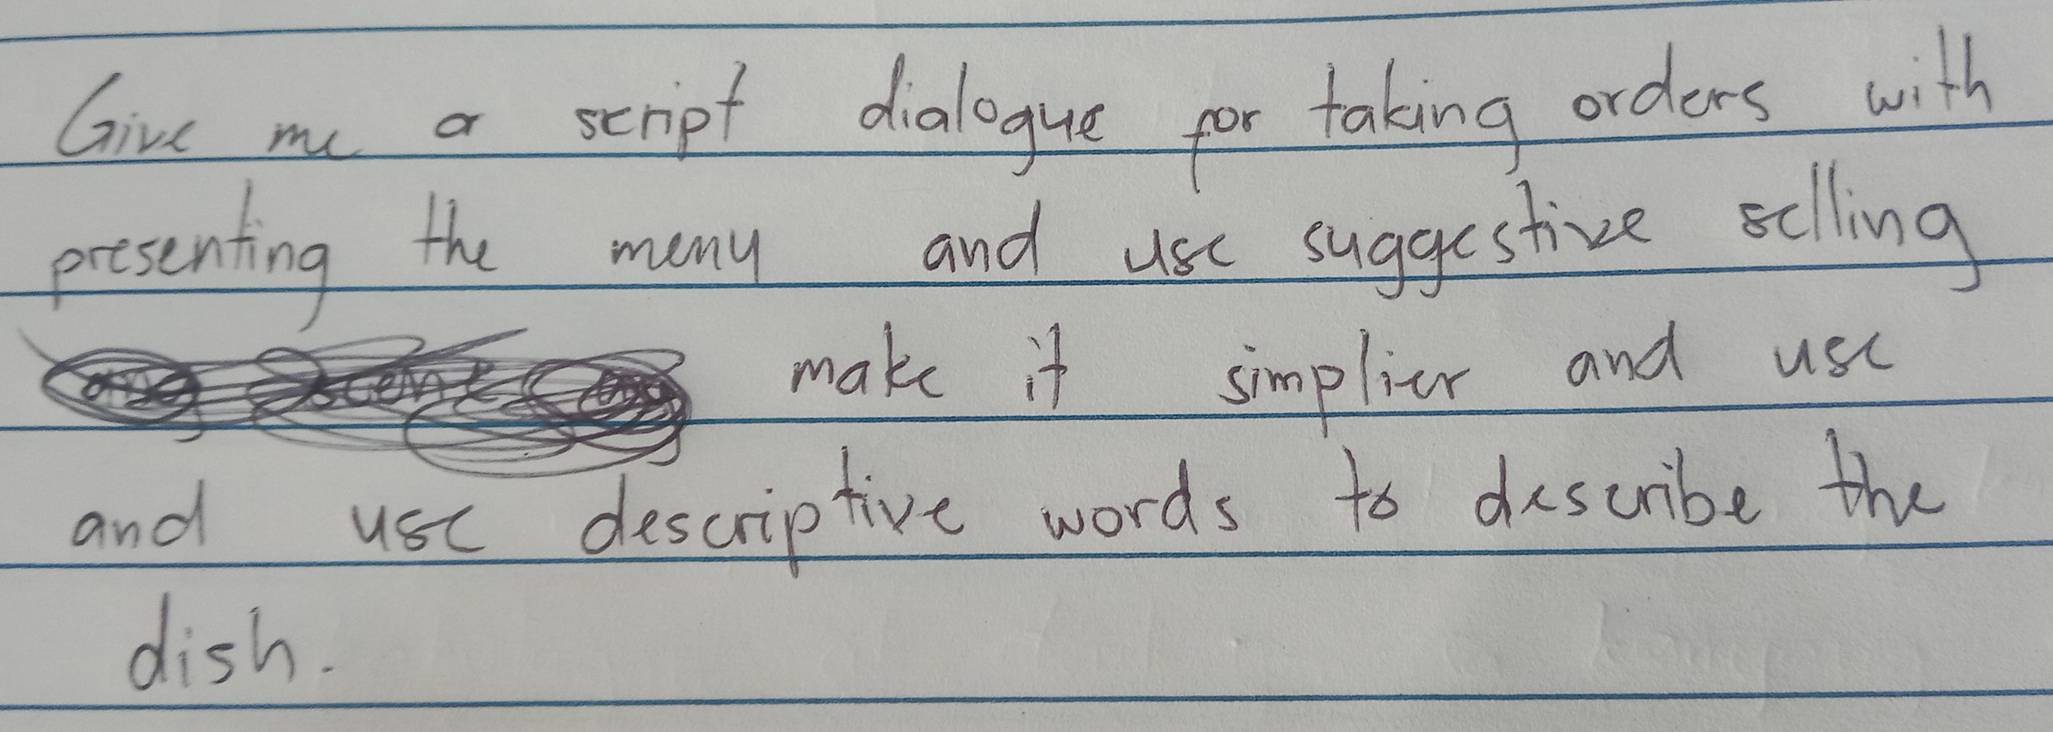 Give me a script dialogue for taking orders with
presenting the menu and use suggestive selling
make it simplier and use
and use descriptive words to describe the
dish.